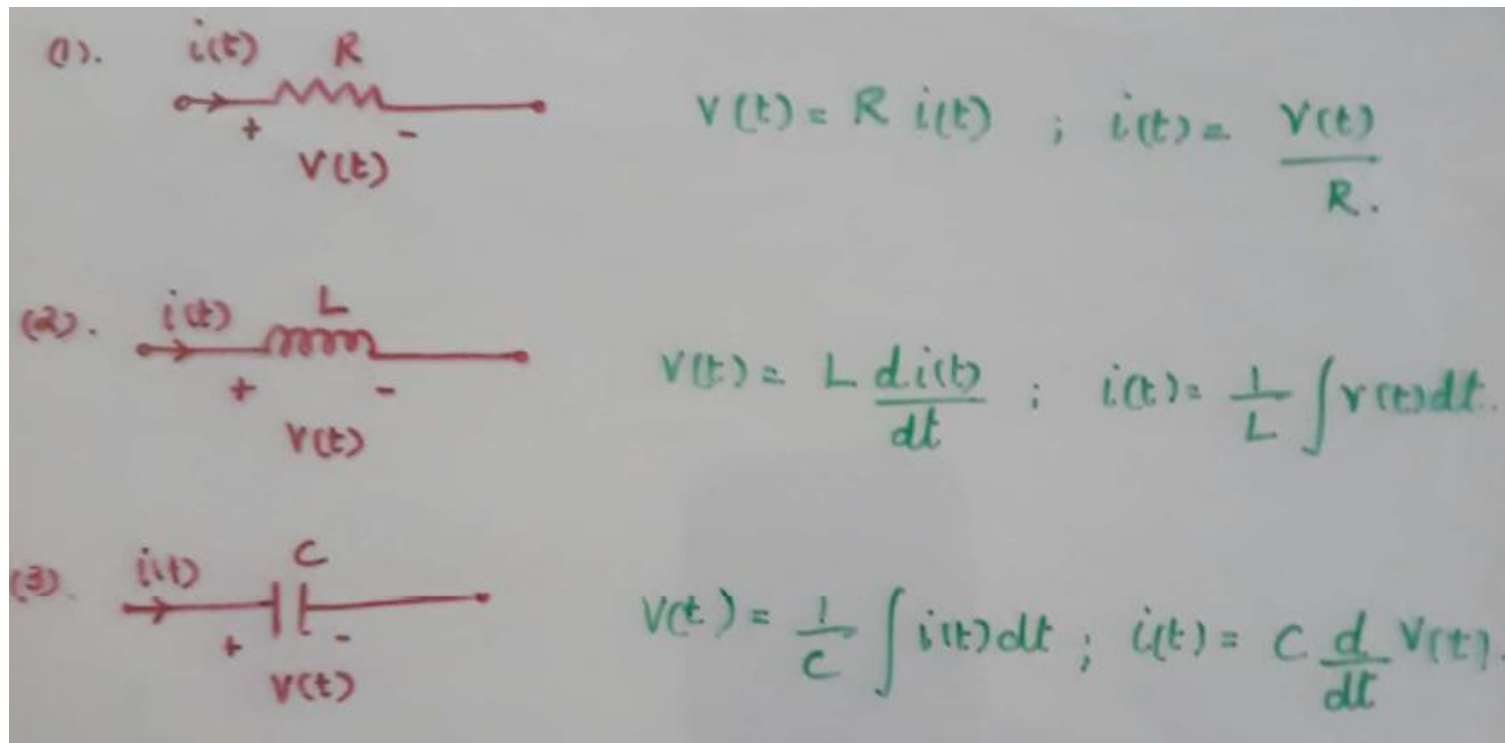 (1). i(t) R
+ -
V(t)
V(t) = R i(t) ; i(t) = V(t) / R.
(2). i(t) L
+ -
V(t)
V(t) = L d i(t) / dt ; i(t) = 1 / L ∫ v(t) dt.
(3). i(t) C
+ -
V(t)
V(t) = 1 / C ∫ i(t) dt ; i(t) = C d / dt V(t).